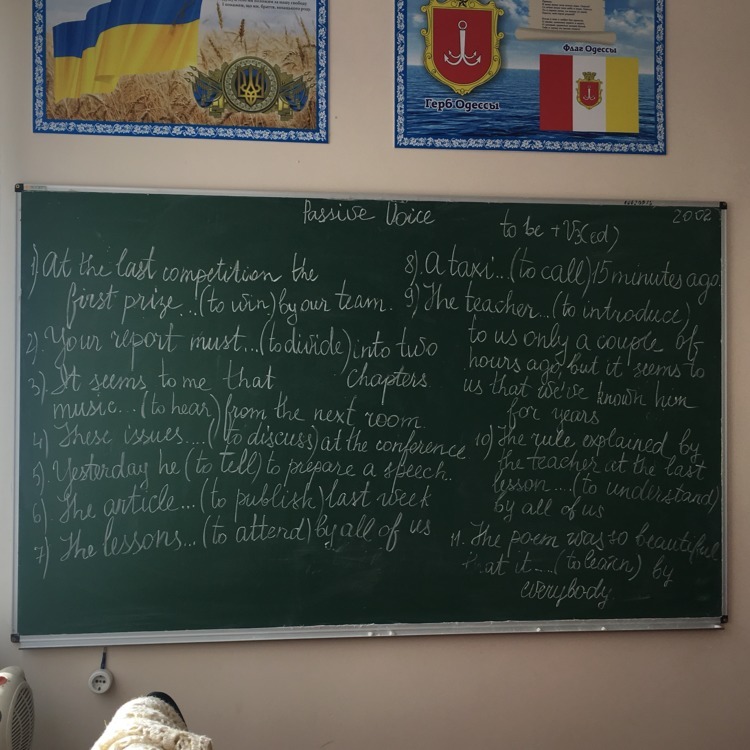 Герб Одессы
Флаг Одессы
Passive Voice
20.02
to be + V3(ed)
1) At the last competition the
first prize...(to win) by our team.
2). Your report must...(to divide) into two
chapters
3). It seems to me that
music...(to hear) from the next room.
4). These issues....(to discuss) at the conference
5). Yesterday he (to tell) to prepare a speech.
6). The article...(to publish) last week
7) The lessons...(to attend) by all of us
8). A taxi...(to call) 15 minutes ago.
9) The teacher...(to introduce)
to us only a couple of
hours ago, but it seems to
us that we've known him
for years
10) The rule explained by
the teacher at the last
lesson....(to understand)
by all of us
11. The poem was so beautiful
at it....(to learn) by
everybody.